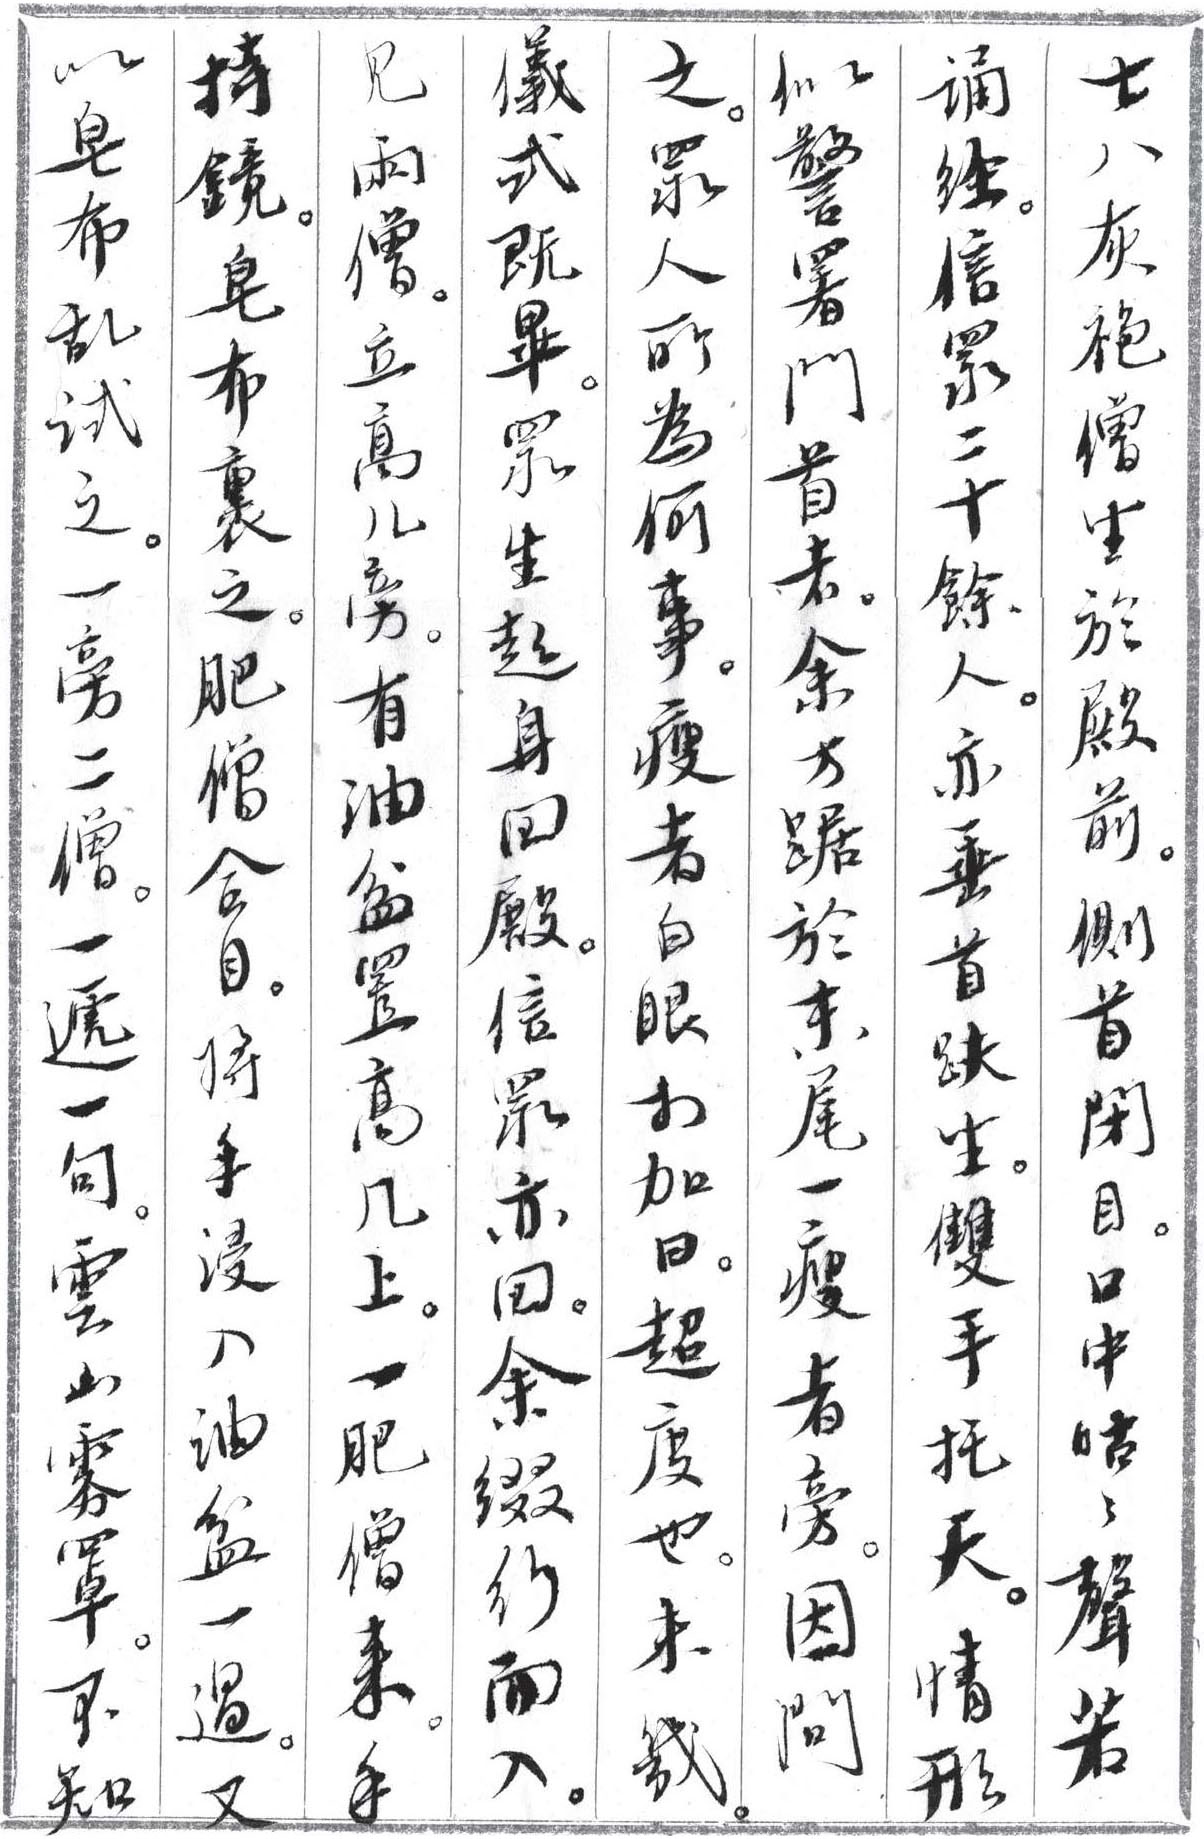 七八灰袍僧坐於殿前。側首閉目。口中咕々聲若
誦經。信眾二十餘人。亦垂首趺坐。雙手托天。情形
似警署門首者。余方踞於末尾一瘦者旁。因問
之。眾人所為何事。瘦者白眼相加曰。超度也。未幾。
儀式既畢。眾生起身回殿。信眾亦回。余綴行而入。
見兩僧。立高几旁。有油盆置高几上。一肥僧來。手
持鏡。皂布裹之。肥僧合目。將手浸入油盆一過。又
以皂布乱試之。一旁二僧。一遞一句。雲山雾罩。不知